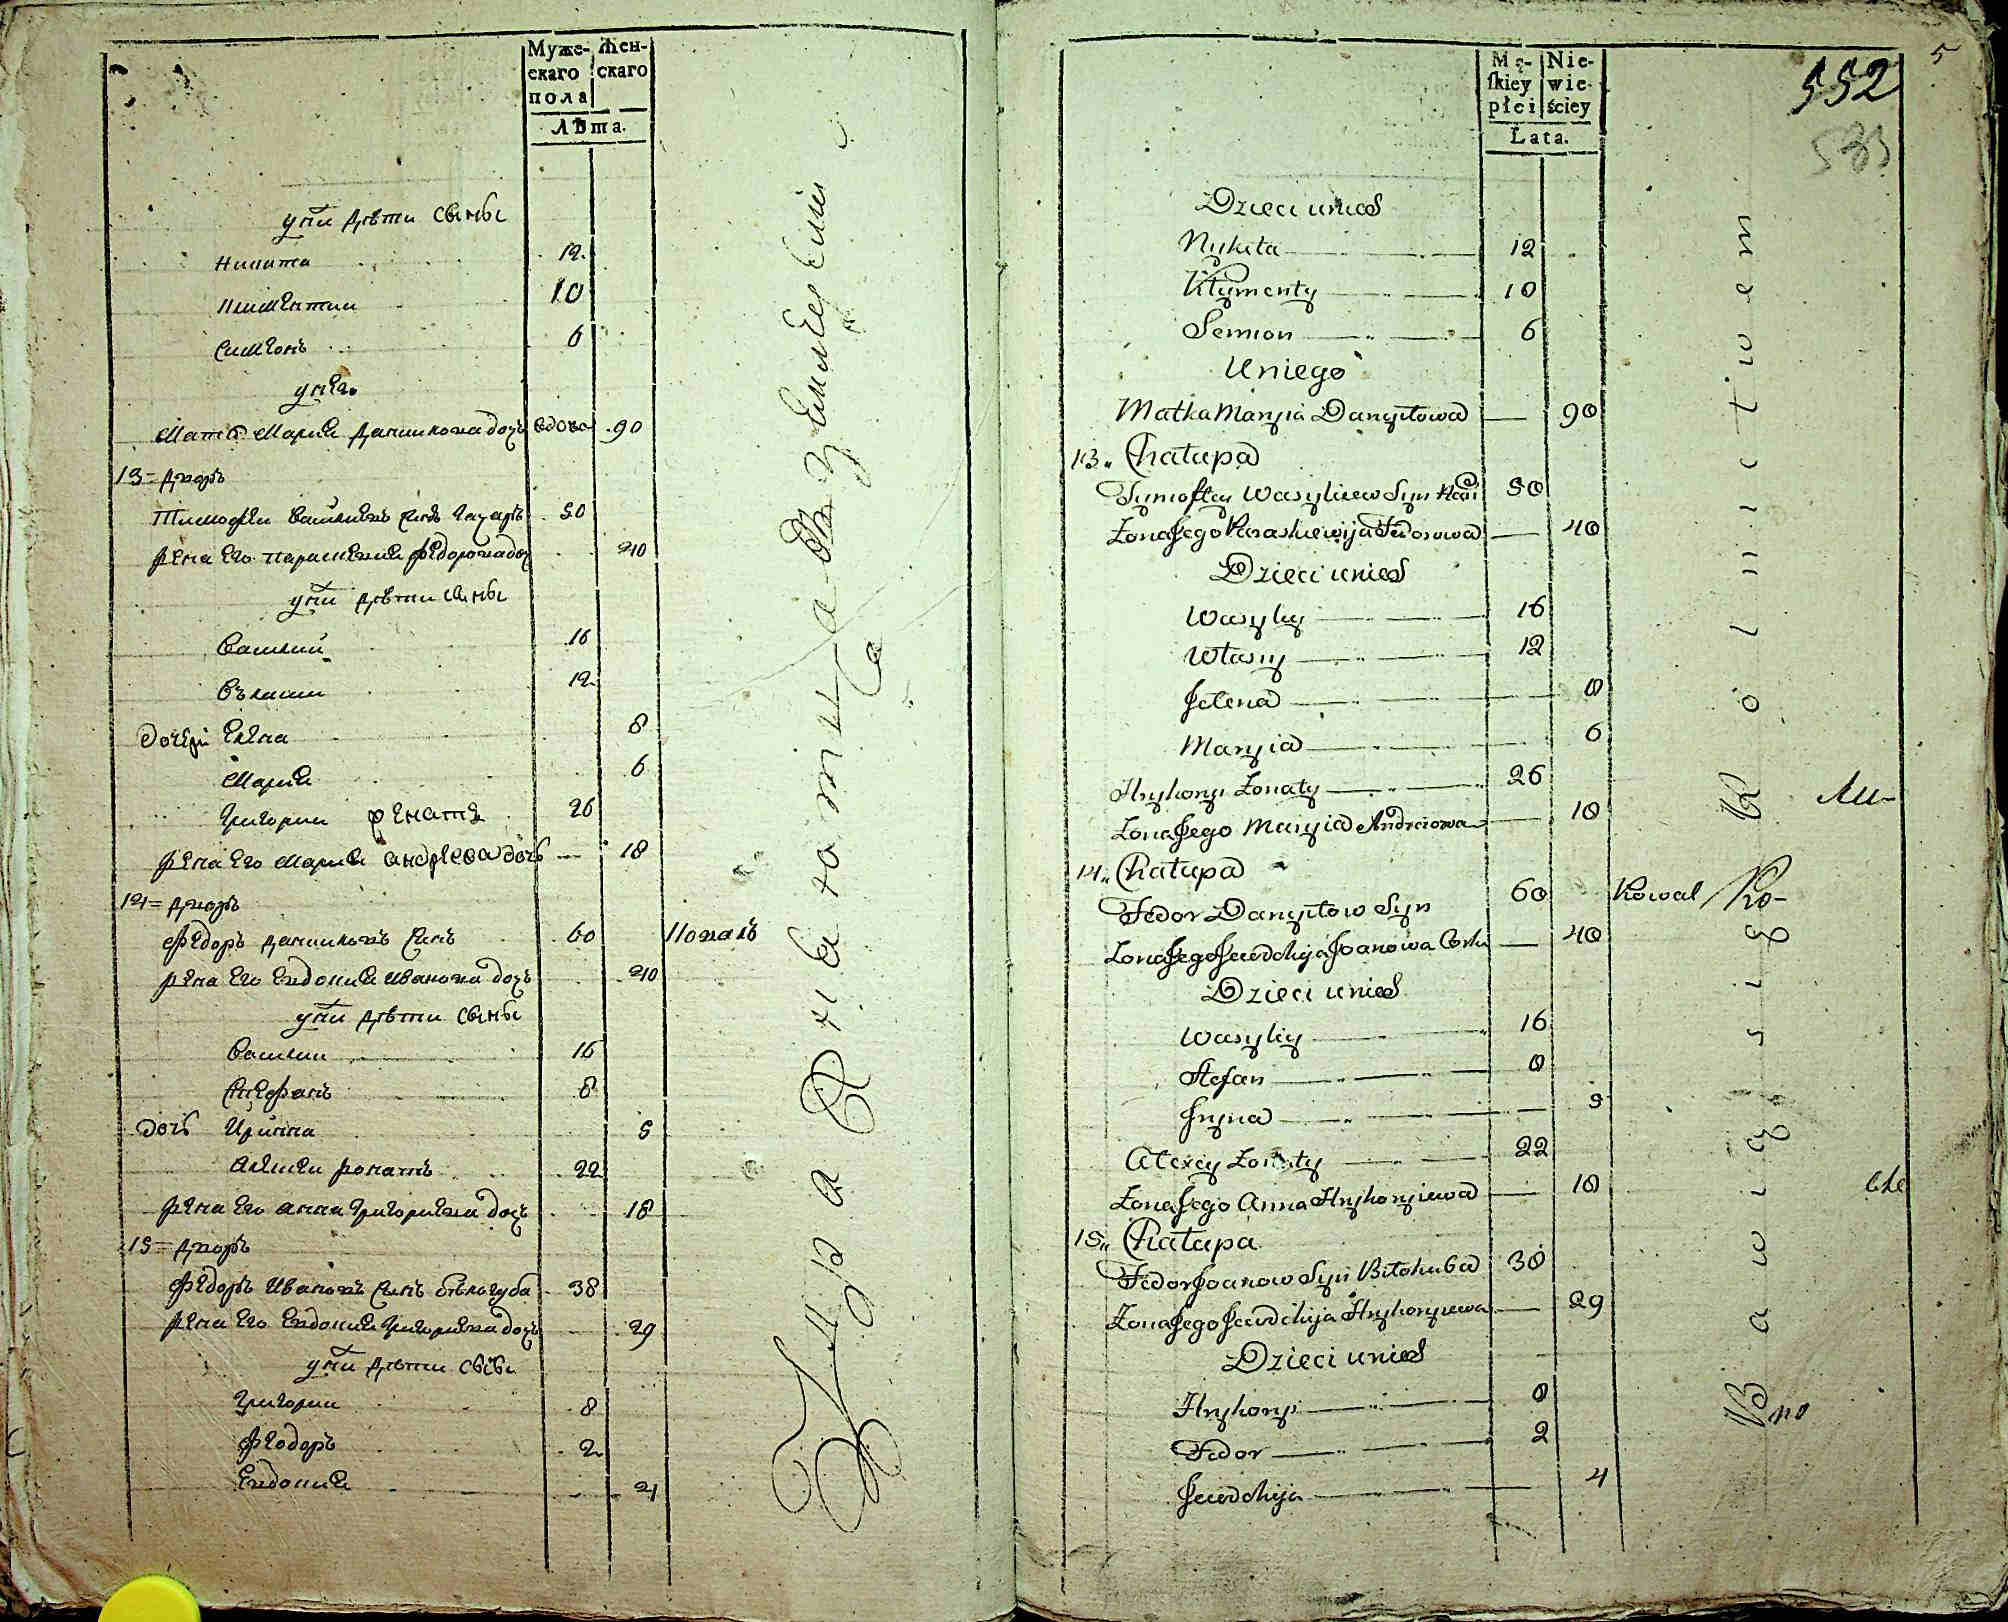 Муже-
скаго
пола
Жен-
скаго
Лѣта.
у них дѣти сыны
Никита 12
Климентии 10
Симеонъ 6
у него
Мать Мария Данилова дочь вдова 90
13 = дворъ
Тимофеи Васильевъ сынъ 50
жена его Параскевия Федорова доч 40
у них дѣти сыны
Василии 16
Власии 12
дочери Елена 8
Мария 6
Григории женатъ 26
жена его Мария Андреева дочь — 18
14 = дворъ
Федоръ Даниловъ сынъ 60 Коваль
жена его Евдокия Иванова дочь 40
у них дѣти сыны
Василии 16
Стефанъ 8
дочь Ирина 5
Алексеи женатъ 22
жена его Анна Григориева дочь 18
15 = дворъ
Федоръ Ивановъ сынъ Бѣлогуба 38
жена его Евдокия Григориева дочь 29
у них дѣти сыны
Григории 8
Феодоръ 2
Евдокия 4
552
5
Mę-
ſkiey
płci
Nie-
wie-
ściey
Lata.
Dzieci unich
Nykita 12
Kłymenty 10
Semion 6
Uniego
Matka Maryia Danyłowa — 90
13„ Chałupa
Tymoftey Wasyliew Syn 50
Żona Jego Paraskiewija Fedorowa — 40
Dzieci unich
Wasyliy 16
Własiy 12
Jełena 8
Maryia 6
Hryhoryi Żonaty 26
Żona Jego Maryia Andreiowa — 18
14„ Chałupa
Fedor Danyłow Syn 60 Kowal
Żona Jego Jewdchija Joanowa Corka — 40
Dzieci unich
Wasyliy 16
Stefan 8
Jryna 5
Alexiy Żonaty 22
Żona Jego Anna Hryhoryiewa — 18
15„ Chałupa
Fedor Joanow Syn Biłohuba 38
Żona Jego Jewdchija Hryhoryiewa — 29
Dzieci unich
Hryhoryi 8
Fedor 2
Jewdchija 4
Bawią się Rolnictwem